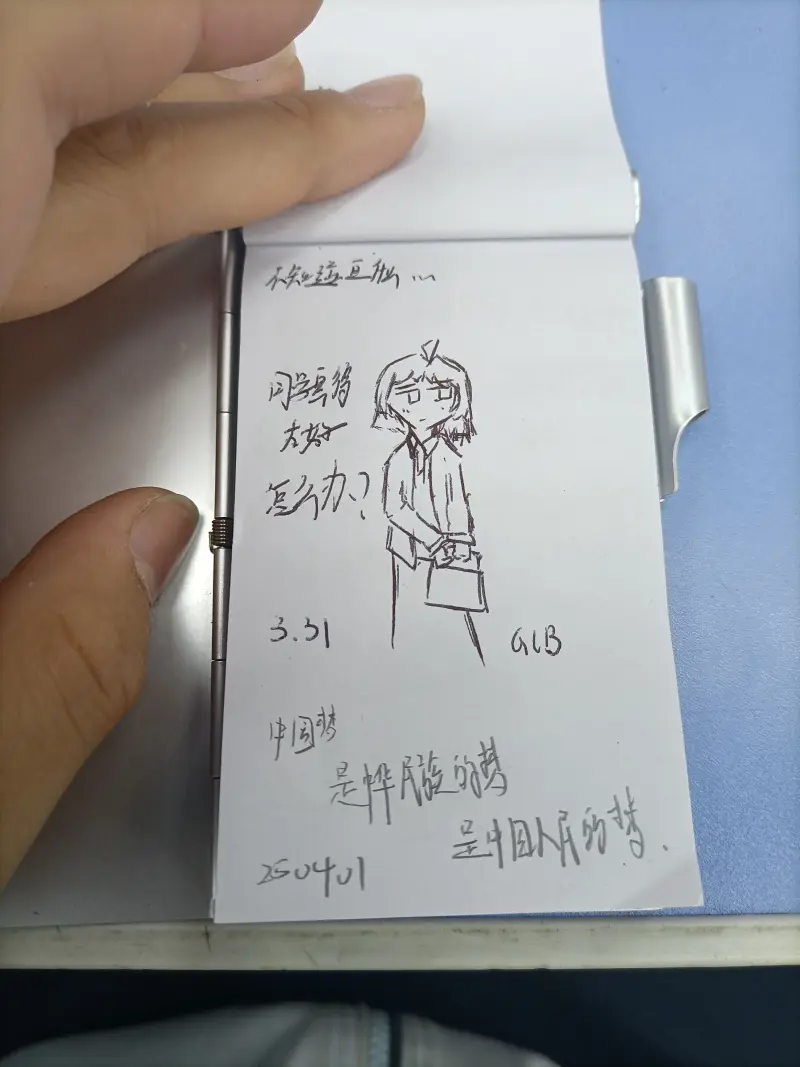 不知道豆腐...
同学画得
太好
怎么办?
3.31
GCB
中国梦
是中华民族的梦
是中国人民的梦.
250401